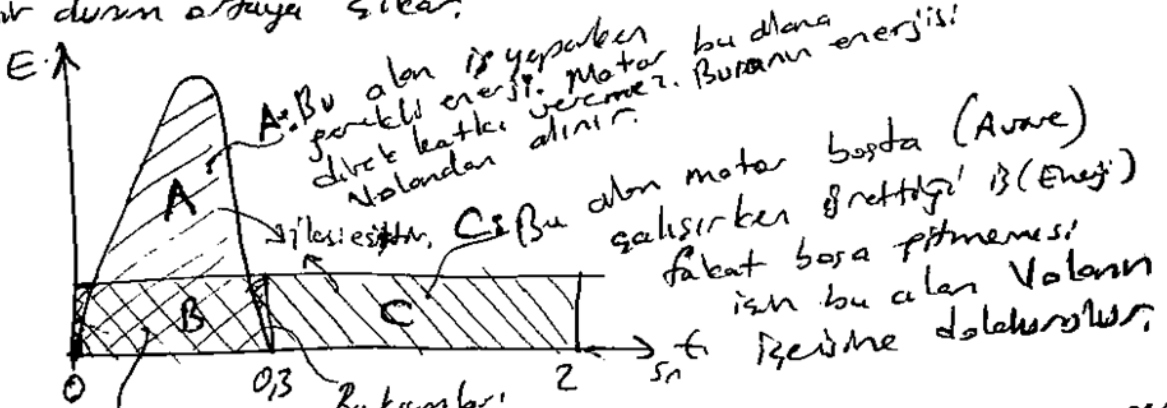 bir durum ortaya çıkar.
E
A: Bu alan iş yaparken
gerekli enerji. Motor bu alana
direk katkı veremez. Buranın enerjisi
Volandan alınır.
A
ikisi eşittir.
C: Bu alan motor boşta (Avare)
çalışırken ürettiği iş (Enerji)
fakat boşa gitmemesi
için bu alan Volanın
içerisine doldurulur.
B
C
0
0,3
2
sn
t
Bu kısımları